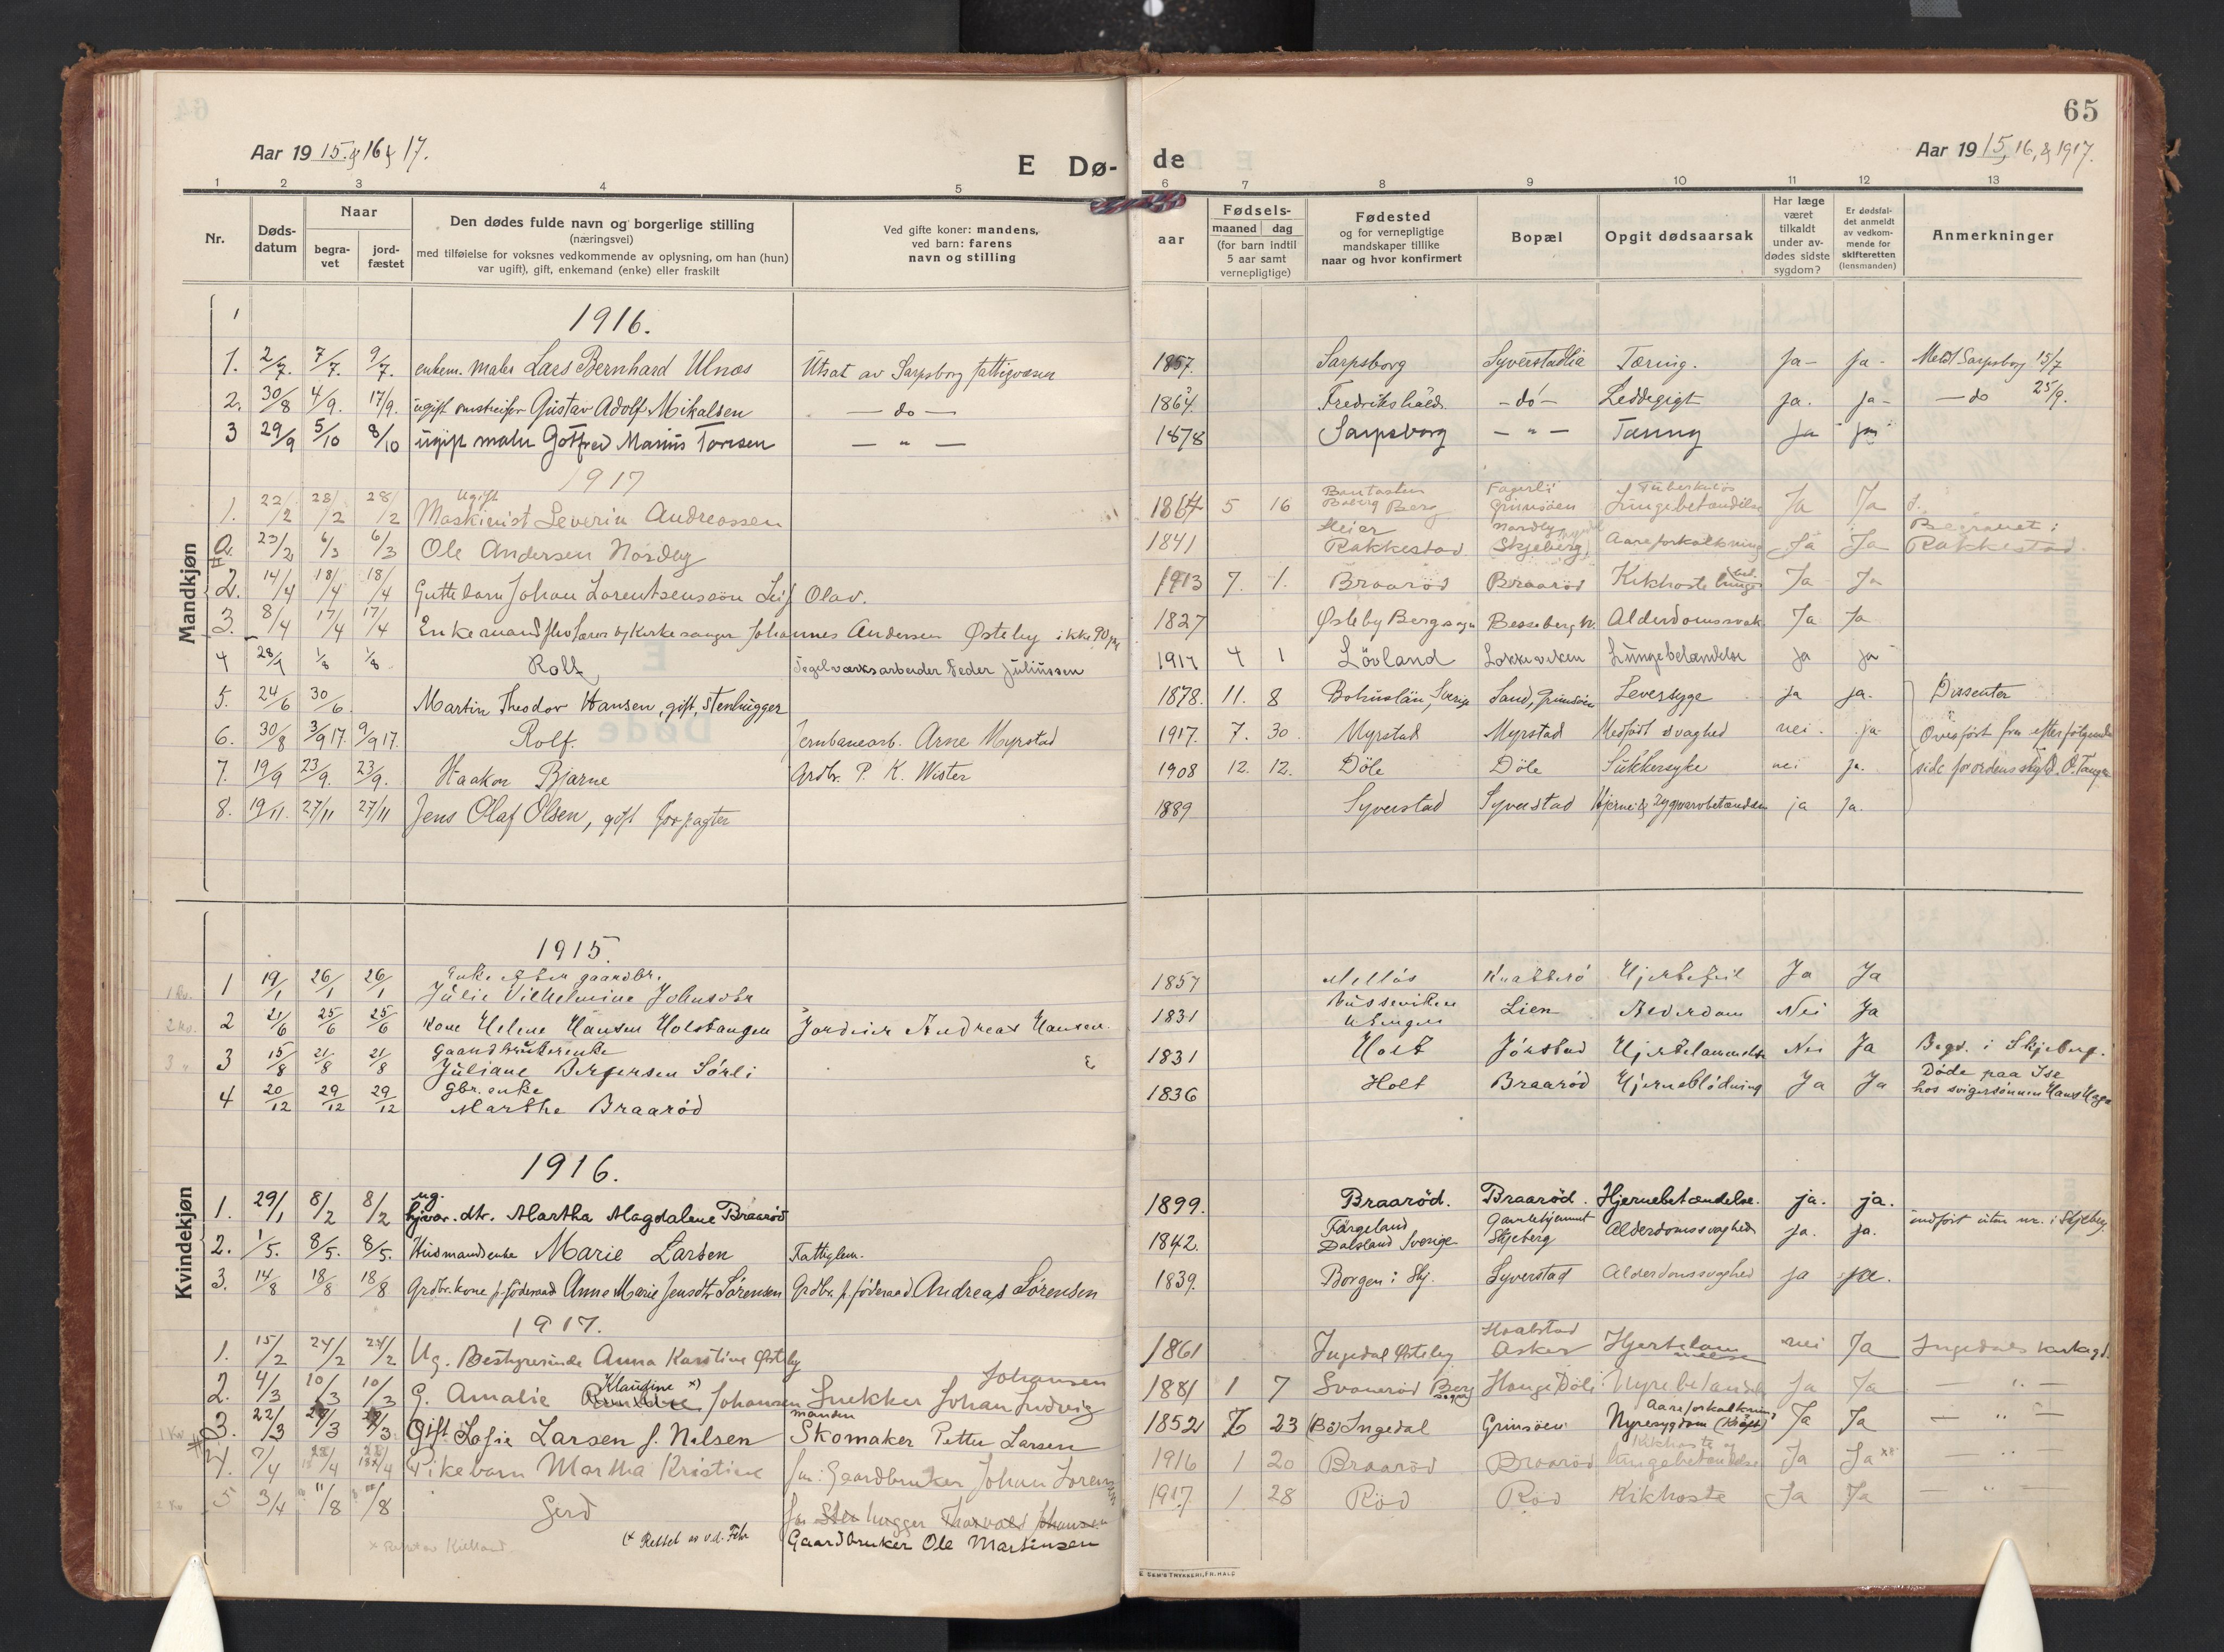 65
Aar 19 15. & 16 & 17.
E Dø-
de
Aar 19 15, 16, & 1917.
1 2 3 4 5 6 7 8 9 10 11 12 13
Nr.
Døds-
datum
Naar
begra-
vet
jord-
fæstet
Den dødes fulde navn og borgerlige stilling
(næringsvei)
med tilføielse for voksnes vedkommende av oplysning, om han (hun)
var ugift), gift, enkemand (enke) eller fraskilt
Ved gifte koner: mandens,
ved barn: farens
navn og stilling
aar
Fødsels-
maaned dag
(for barn indtil
5 aar samt
vernepligtige)
Fødested
og for vernepligtige
mandskaper tillike
naar og hvor konfirmert
Bopæl
Opgit dødsaarsak
Har læge
været
tilkaldt
under av-
dødes sidste
sygdom?
Er dødsfal-
det anmeldt
av vedkom-
mende for
skifteretten
(lensmanden)
Anmerkninger
Mandkjøn
1916.
1. 2/7. 7/7. 9/7. enkem. maler Lars Bernhard Ulnæs Utsat av Sarpsborg fattigvæsen 1857. Sarpsborg Syverstadlia Tæring. Ja- ja- Meldt Sarpsborg 15/7
2. 30/8 4/9. 17/9. ugift omstreifer Gustav Adolf Mikalsen - do - 1864. Fredrikshald. - do - Leddegigt ja. ja- - do 25/9.
3 29/9 5/10 8/10 ugift maler Gotfred Marius Toresen - " - 1878 Sarpsborg - " - Tæring ja ja
1917
1. 22/2 28/2 28/2 Ugift Maskinist Severin Andreassen 1864 5 16 Berg Fagerli Grimsøen Tuberkuløs Lungebetændelse Ja Ja
2. 23/2 6/3 6/3 Ole Andersen Nordby 1841 Rakkestad Nordby Skjeberg Aareforkalkning Ja Ja Begravet i Rakkestad.
2. 14/4 18/4 18/4 Guttebarn Johan Lorentsens søn Leif Olav. 1913 7. 1. Braarød Braarød Kikhoste Ja Ja
3. 8/4 17/4 17/4 Enkemand fhv lærer og Kirkesanger Johannes Andersen Østeby ikke 90 1827 Østeby Berg sogn Alderdomssvak Ja Ja
4 28/7 1/8 1/8 Rolf Teglværksarbeider Peder Juliussen 1917 4 1 Løvland Lokkeviken Lungebetændelse ja ja
5. 24/6 30/6 Martin Theodor Hansen, gift, stenhugger 1878. 11. 8 Bohuslän, Sverige Sand, Grimsøen Leversyge ja ja. Dissenter
6. 30/8 3/9 17. 9/9 17. Rolf. Jernbanearb. Arne Myrstad 1917. 7. 30. Myrstad Myrstad Medfødt svaghed nei. ja Overført fra efterfølgende
7. 19/9 23/9. 23/9. Haakon Bjarne Grdbr. P. K. Wister 1908 12. 12. Døle Døle Sukkersyke nei ja. side for ordens skyld. O. Tangen
8. 19/11. 27/11 27/11 Jens Olaf Olsen, gift forpagter 1889 Syverstad Syverstad Hjerne & rygmarvbetændelse ja ja.
Kvindekjøn
1915.
1 Kv. 1 19/1 26/1 26/1 Enke efter gaardbr. Julie Vilhelmine Johnsdtr 1857 Melløs Knatterø Hjertefeil Ja Ja
2 Kv. 2 21/6 25/6 25/6 Kone Helene Hansen Holstangen Jordeier Andreas Hansen. 1831 Lien Alderdom Nei Ja
3 " 3 15/8 21/8 21/8 Gaardbrukerenke Juliane Birgersen Sørli 1831 Holt Jørstad Hjertelammelse Nei Ja Begr. i Skjeberg.
4 20/12 29/12 29/12 Gbr. enke Marthe Braarød 1836 Holt Braarød Hjerneblødning Ja Ja Døde paa Ise hos svigersønnen Hans Hage
1916.
1. 29/1 8/2 8/2 ug. gjvar. dtr. Martha Magdalene Braarød 1899. Braarød. Braarød. Hjernebetændelse. ja. ja.
2. 1/5. 8/5. 8/5. Husmandsenke Marie Larsen Fattiglem. 1842. Färgeland Dalsland Sverige Gamlehjemmet Skjeberg Alderdomssvaghed ja. ja. indført uten nr. i Skjeberg.
3. 14/8 18/8 18/8 Grdbr. kone p. føderaad Anne Marie Jensdtr Sørensen Grdbr. p. føderaad Andreas Sørensen 1839. Borgen i Skj. Syverstad Alderdomssvaghed ja ja.
1917.
1. 15/2 24/2 24/2 Ug. Bestyrerinde Anna Karstine Østeby 1861 Ingedal Østeby Hvalstad Asker Hjertelammelse nei Ja Ingedals kirkegd.
2. 4/3 10/3 10/3 G. Amalie Klaudine x) Johansen Snekker Johan Ludvig Johansen 1881 1 7 Svanerød Berg sogn Hauge Døli Nyrebetændelse Ja Ja - " -
1 Kv 3. 22/3 29/3 29/3. Gift Sofie Larsen f. Nilsen manden Skomaker Petter Larsen 1852 7 23 (Bø) Ingedal Grimsøen Aareforkalkning Nyresygdom (Kræft) Ja Ja - " -
4. 7/4 18/4 18/4 Pikebarn Martha Kristine far: Gaardbruker Johan Lorentzen 1916 1 20 Braarød Braarød Kikhoste og lungebetændelse Ja Ja - " -
2 Kv 5 3/4 11/8 11/8 Gerd far Stenhugger Thorvald Johansen 1917. 1. 28 Rød Rød Kikhoste Ja Ja - " -
Gaardbruker Ole Martinsen